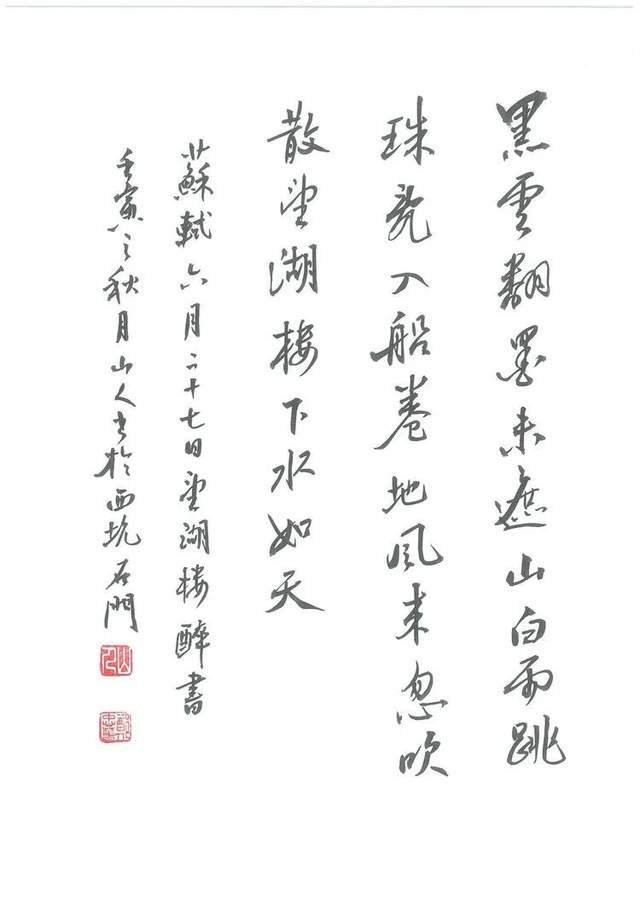 黑雲翻墨未遮山白雨跳
珠亂入船卷地風來忽吹
散望湖樓下水如天
蘇軾六月二十七日望湖樓醉書
壬寅之秋月山人书於西坑石門